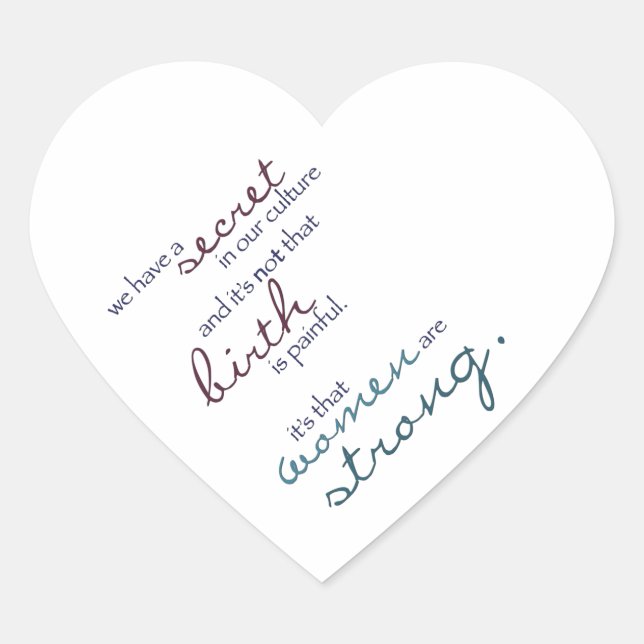 we have a secret
in our culture
and it's not that
birth
is painful.
it's that
women are
strong.